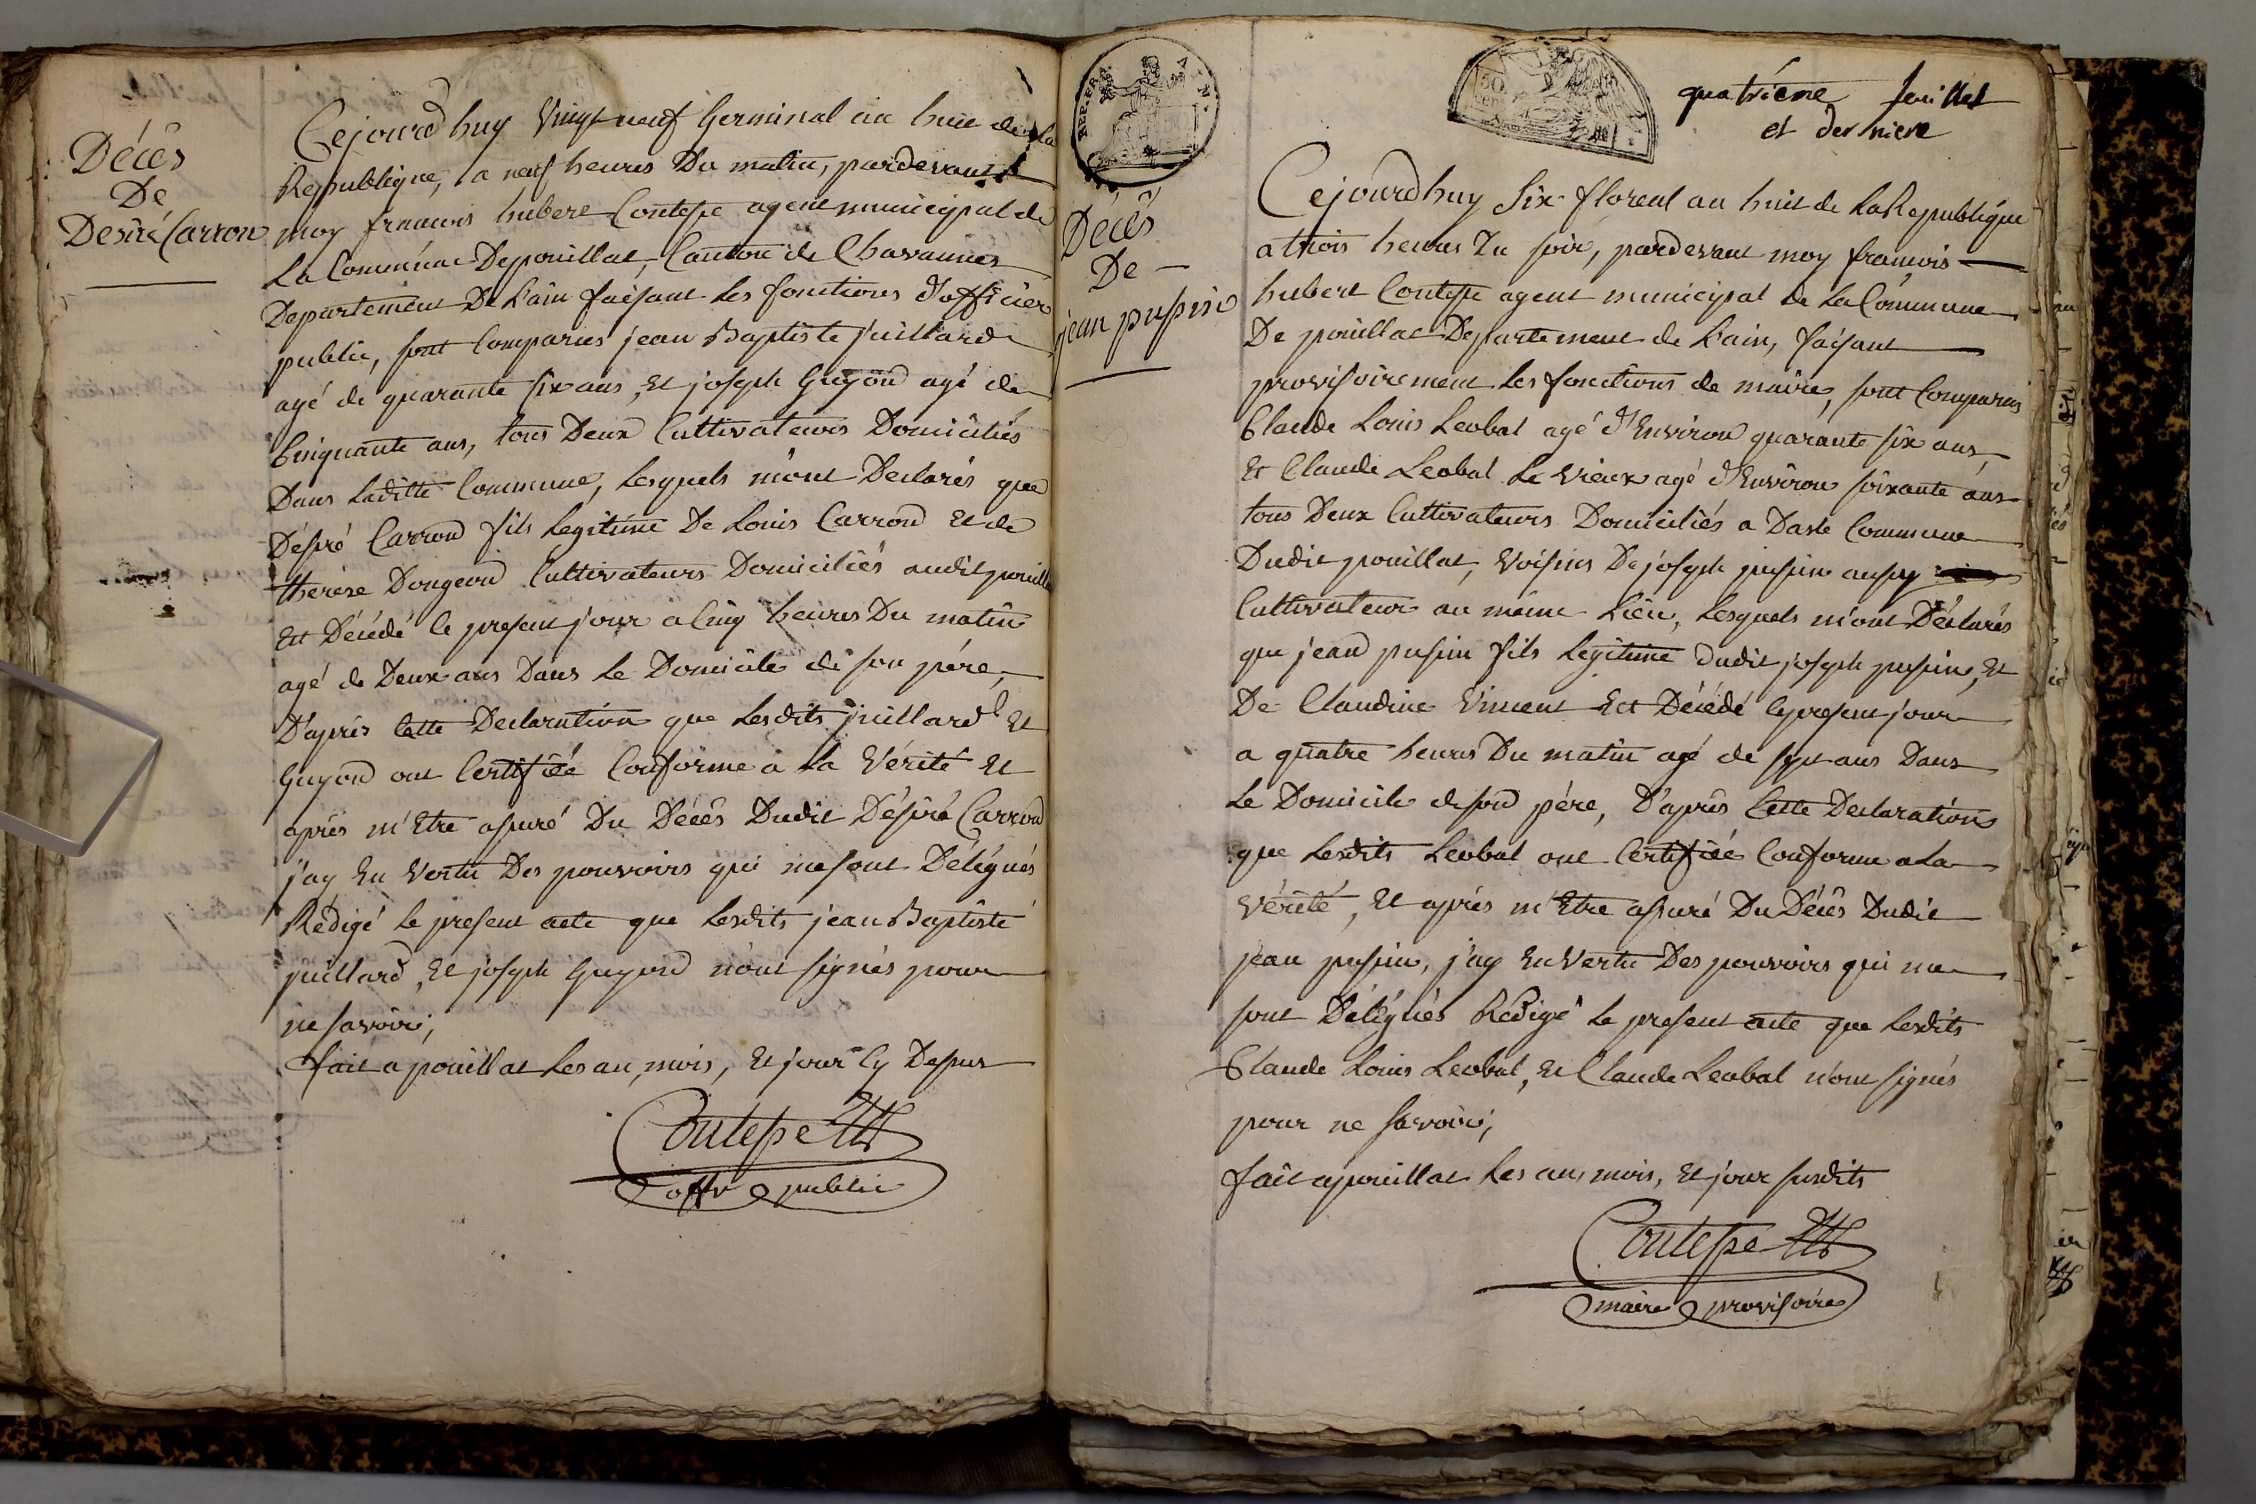 Décês
De
Desiré Carron
Cejourd huy Vingt neuf Germinal an huit de la
Republique, a neuf heures Du matin, pardevant
moy francois hubert Contesse agent municipal de
La Commune Depouillat, Canton de Chavannes
Departement De Lain faisant Les fonctions d'officier
public, sont Comparus jean Baptiste juillard
agé de quarante six ans, Et joseph Guyond agé de
Cinquante ans, tous Deux Cultivateurs Domiciliés
Dans Laditte Commune, Lesquels m'ont Declarés que
Désiré Carrond fils Legitime De Louis Carrond Et de
therèse Dongeord Cultivateurs Domiciliés audit pouillat
Est Décédé le present jour a Cinq heures Du matin
agé de Deux ans Dans Le Domicile de son pére,
D'aprés Cette Declaration que Lesdits juillard Et
Guyond ont Certifiée Conforme a La Vérité Et
aprés m'Etre assuré Du Décês Dudit Désiré Carrond
j'ay En Vertu Des pouvoirs qui me sont Délégués
Rédigé Le present acte que Lesdits jean Baptiste
juillard, Et joseph Guyond n'ont signés pour
ne savoir;
fait a pouillat Les an, mois, Et jour Cy Dessus
Contesse
offr public
REP. FRA.
50
quatriéme feuillet
et derniere
Décês
De
jean pussin
Cejourd huy Six floreal an huit de La Republique
a trois heures Du soir, pardevant moy francois
hubert Contesse agent municipal de La Commune
De pouillat Departement de L'ain, faisant
provisoirement Les fonctions de maire, sont Comparus
Claude Louis Leobal agé d'Environ quarante six ans,
Et Claude Leobal Le vieux agé d'Environ soixante ans
tous Deux Cultivateurs Domiciliés a Commune
Dudit pouillat, Voisins De joseph pussin aussy
Cultivateur au même Lieu, Lesquels m'ont Déclarés
que jean pussin fils Legitime dudit joseph pussin, Et
De Claudine Vincent Est Décédé le present jour
a quatre heures Du matin agé de sept ans Dans
Le Domicile de sond pére, D'aprês Cette Declaration
que Lesdits Leobal ont Certifiée Conforme a La
Vérité, Et aprés m'Etre assuré Du Décês Dudit
jean pussin, j'ay En Vertu Des pouvoirs qui me
sont Délégués Rédigé Le present acte que Lesdits
Claude Louis Leobal, Et Claude Leobal n'ont signés
pour ne savoir;
fait a pouillat Les an, mois, Et jour susdits
Contesse
maire provisoire